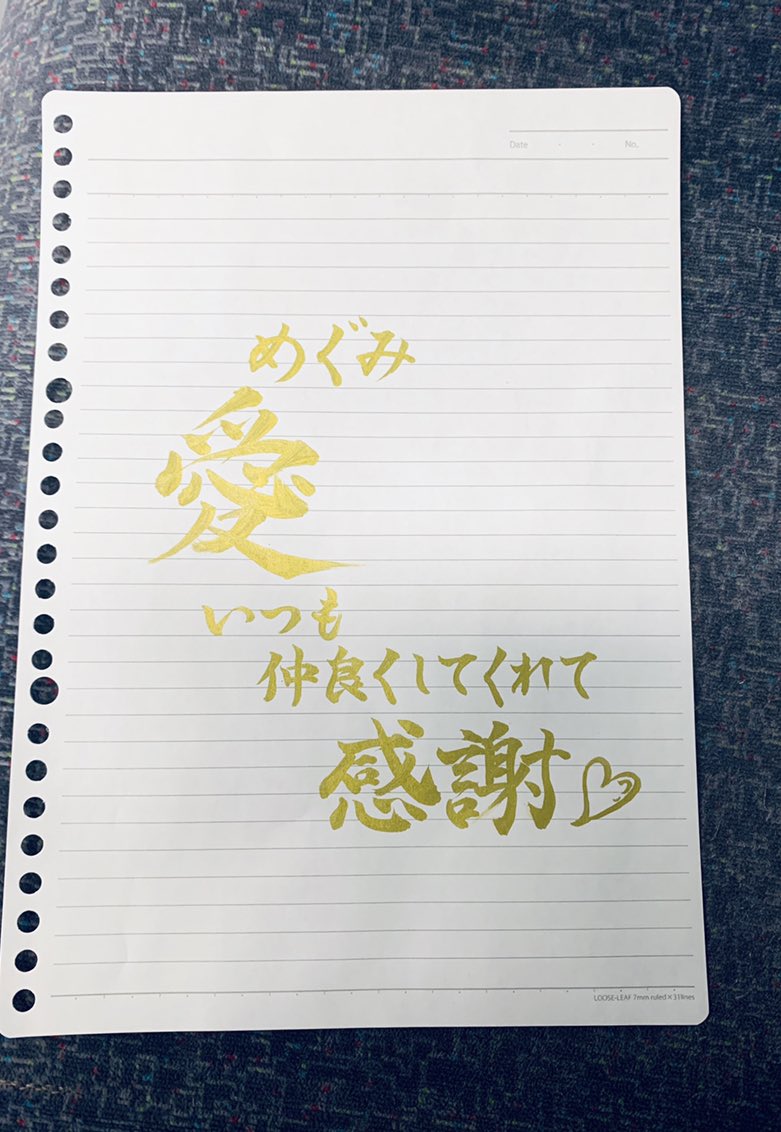 Date ・ ・ No.
めぐみ
愛
いつも
仲良くしてくれて
感謝♡
LOOSE-LEAF 7mm ruled×31lines